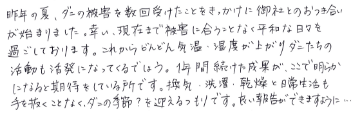 昨年の夏、ダニの被害を数回受けたことをきっかけに御社とのおつき合い
が始まりました。幸い、現在まで被害に合うことなく平和な日々を
過ごしております。これからどんどん気温・湿度が上がりダニたちの
活動も活発になってくるでしょう。1年間続けた成果が、ここで明らか
になると期待をしている所です。換気・洗濯・乾燥と日常生活も
手を抜くことなく、ダニの季節?を迎えるつもりです。良い報告ができますように…